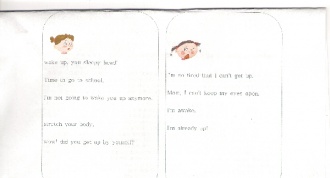 wake up, you sleepy head!
Time to go to school.
I'm not going to wake you up anymore.
Stretch your body.
Wow! did you get up by yourself?
I'm so tired that I can't get up.
Mom, I can't keep my eyes open.
I'm awake.
I'm already up!